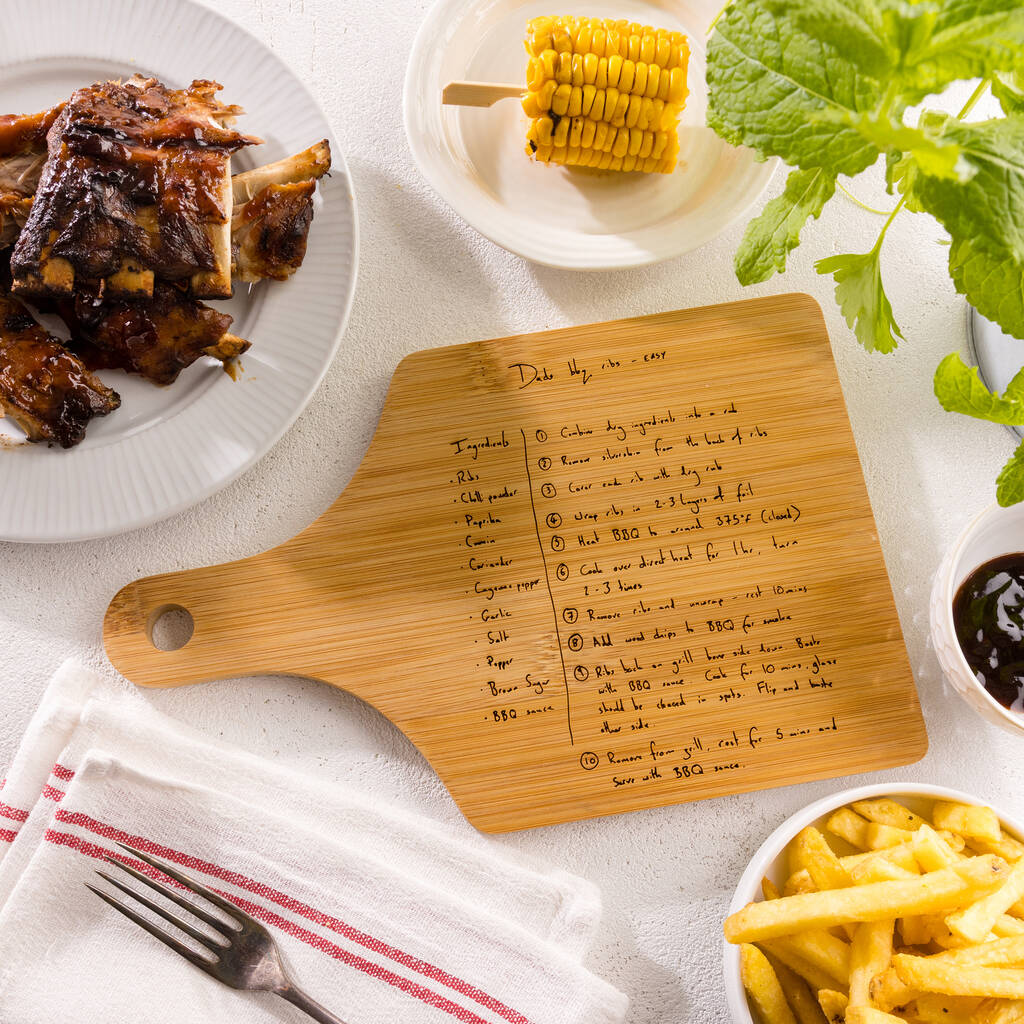 Dads bbq ribs - EASY
Ingredients
· Ribs
· Chilli powder
· Paprika
· Cumin
· Coriander
· Cayenne pepper
· Garlic
· Salt
· Pepper
· Brown Sugar
· BBQ sauce
① Combine dry ingredients into a rub
② Remove silverskin from the back of ribs
③ Cover each rib with dry rub
④ Wrap ribs in 2-3 layers of foil
⑤ Heat BBQ to around 375°F (closed)
⑥ Cook over direct heat for 1hr, turn
2-3 times
⑦ Remove ribs and unwrap - rest 10mins
⑧ Add wood chips to BBQ for smoke
⑨ Ribs back on grill bone side down. Baste
with BBQ sauce. Cook for 10 mins, glaze
should be charred in spots. Flip and baste
other side.
⑩ Remove from grill, rest for 5 mins and
Serve with BBQ sauce.